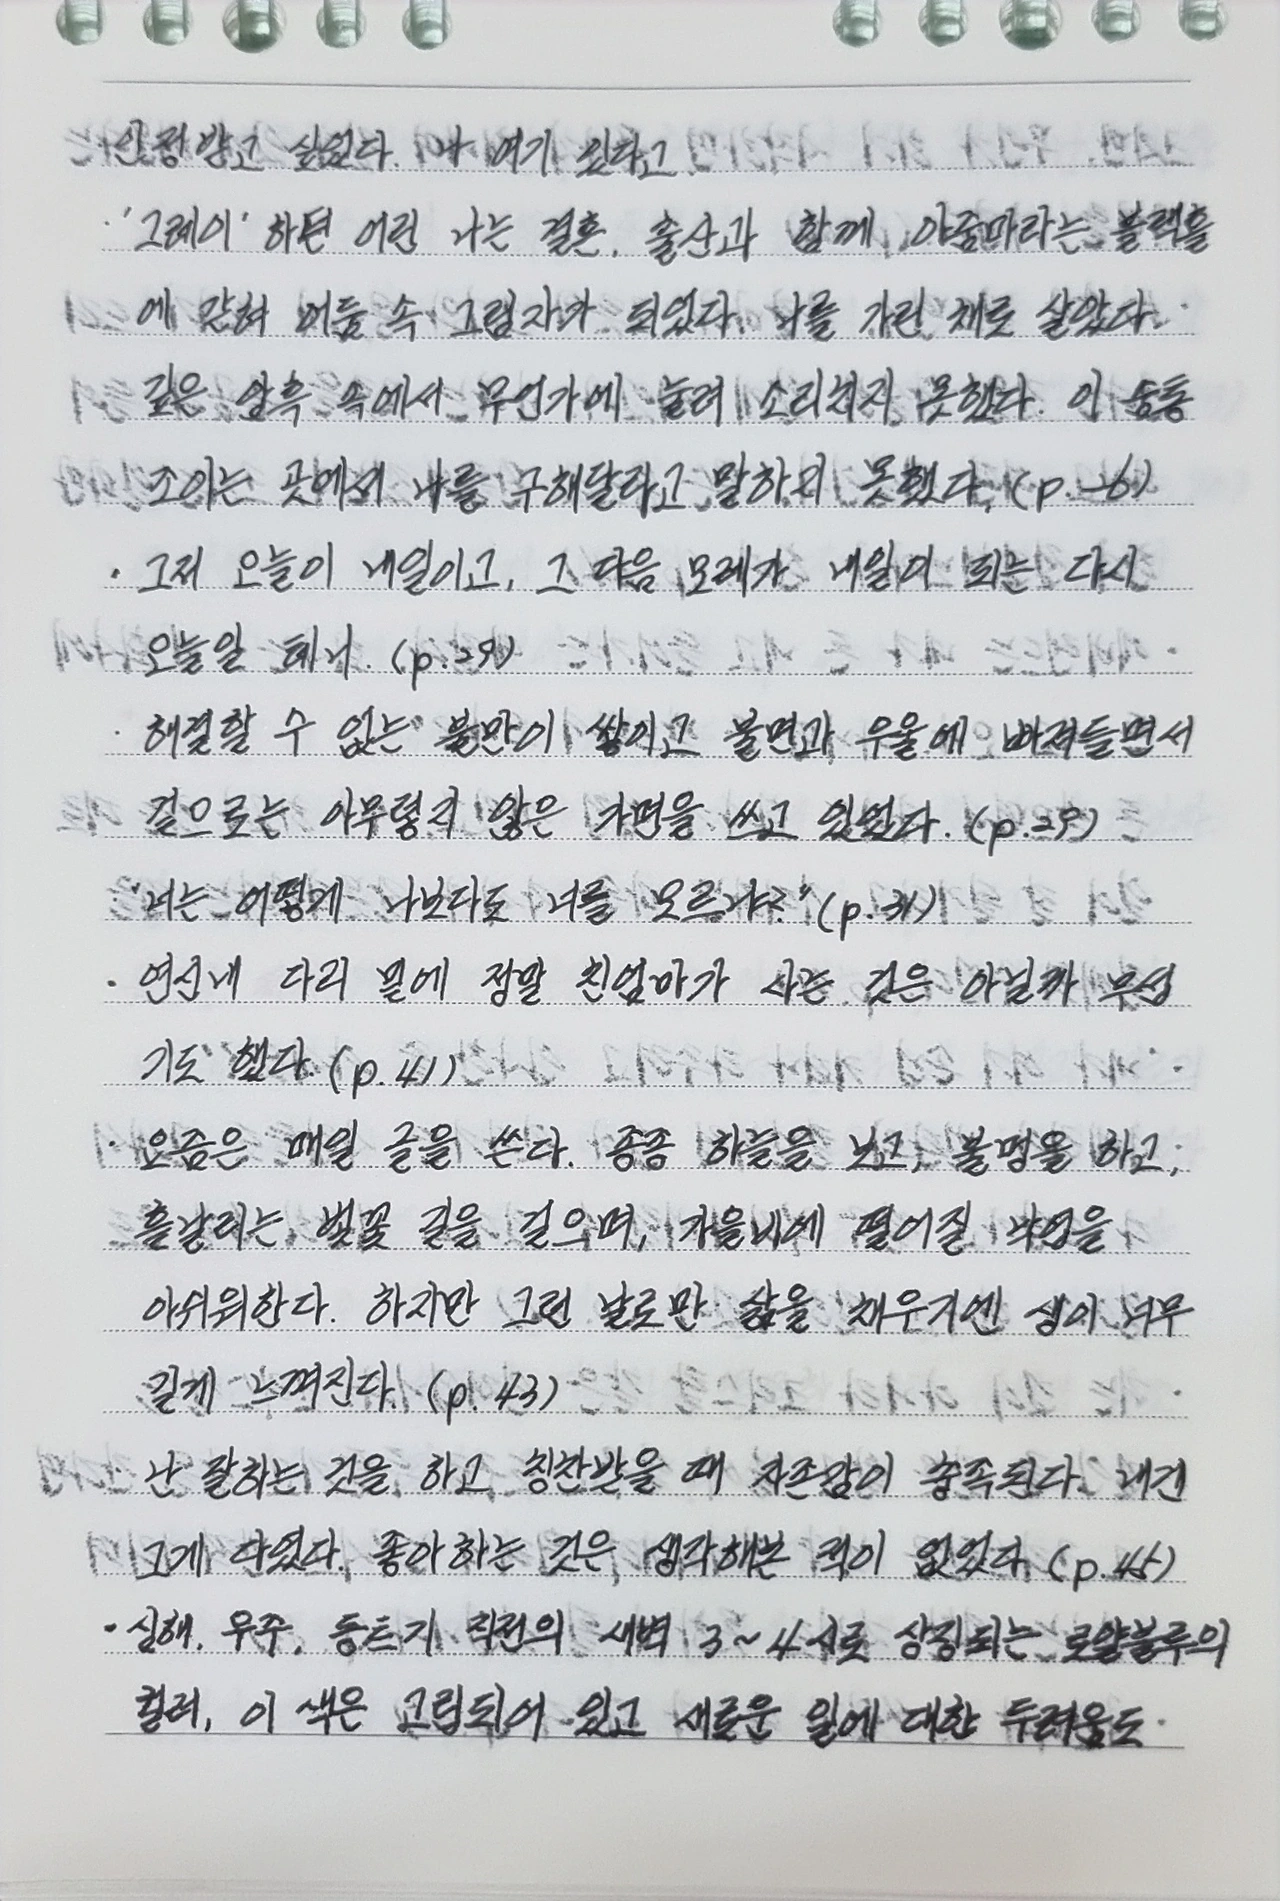 인정받고 싶었다. 나 여기 있다고
·'그레이' 하던 어린 나는 결혼, 출산과 함께 아줌마라는 블랙홀
에 갇혀 어둠 속 그림자가 되었다. 나를 가린 채로 살았다.
깊은 암흑 속에서 무언가에 눌려 소리치지 못했다. 이 숨통
조이는 곳에서 나를 구해달라고 말하지 못했다. (p.26)
· 그저 오늘이 내일이고, 그 다음 모레가 내일이 되는 다시
오늘일 테니. (p.29)
· 해결할 수 없는 불만이 쌓이고 불면과 우울에 빠져들면서
겉으로는 아무렇지 않은 가면을 쓰고 있었다. (p.29)
"너는 어떻게 나보다도 너를 모르냐?" (p.31)
· 연신내 다리 밑에 정말 친엄마가 사는 것은 아닐까 무섭
기도 했다. (p.41)
· 요즘은 매일 글을 쓴다. 종종 하늘을 보고, 불멍을 하고,
흩날리는 벚꽃 길을 걸으며, 가을비에 떨어질 낙엽을
아쉬워한다. 하지만 그런 날로만 삶을 채우기엔 생이 너무
길게 느껴진다. (p.43)
난 잘하는 것을 하고 칭찬받을 때 자존감이 충족된다. 내겐
그게 다였다. 좋아하는 것은 생각해본 적이 없었다. (p.45)
· 심해, 우주, 동트기 직전의 새벽 3~4시로 상징되는 로얄블루의
컬러, 이 색은 고립되어 있고 새로운 일에 대한 두려움도